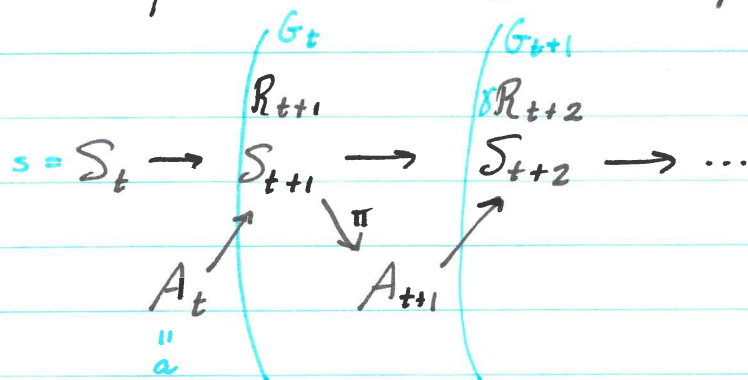 G_t G_{t+1}
R_{t+1} γR_{t+2}
s = S_t → S_{t+1} → S_{t+2} → ...
π
A_t A_{t+1}
=
a